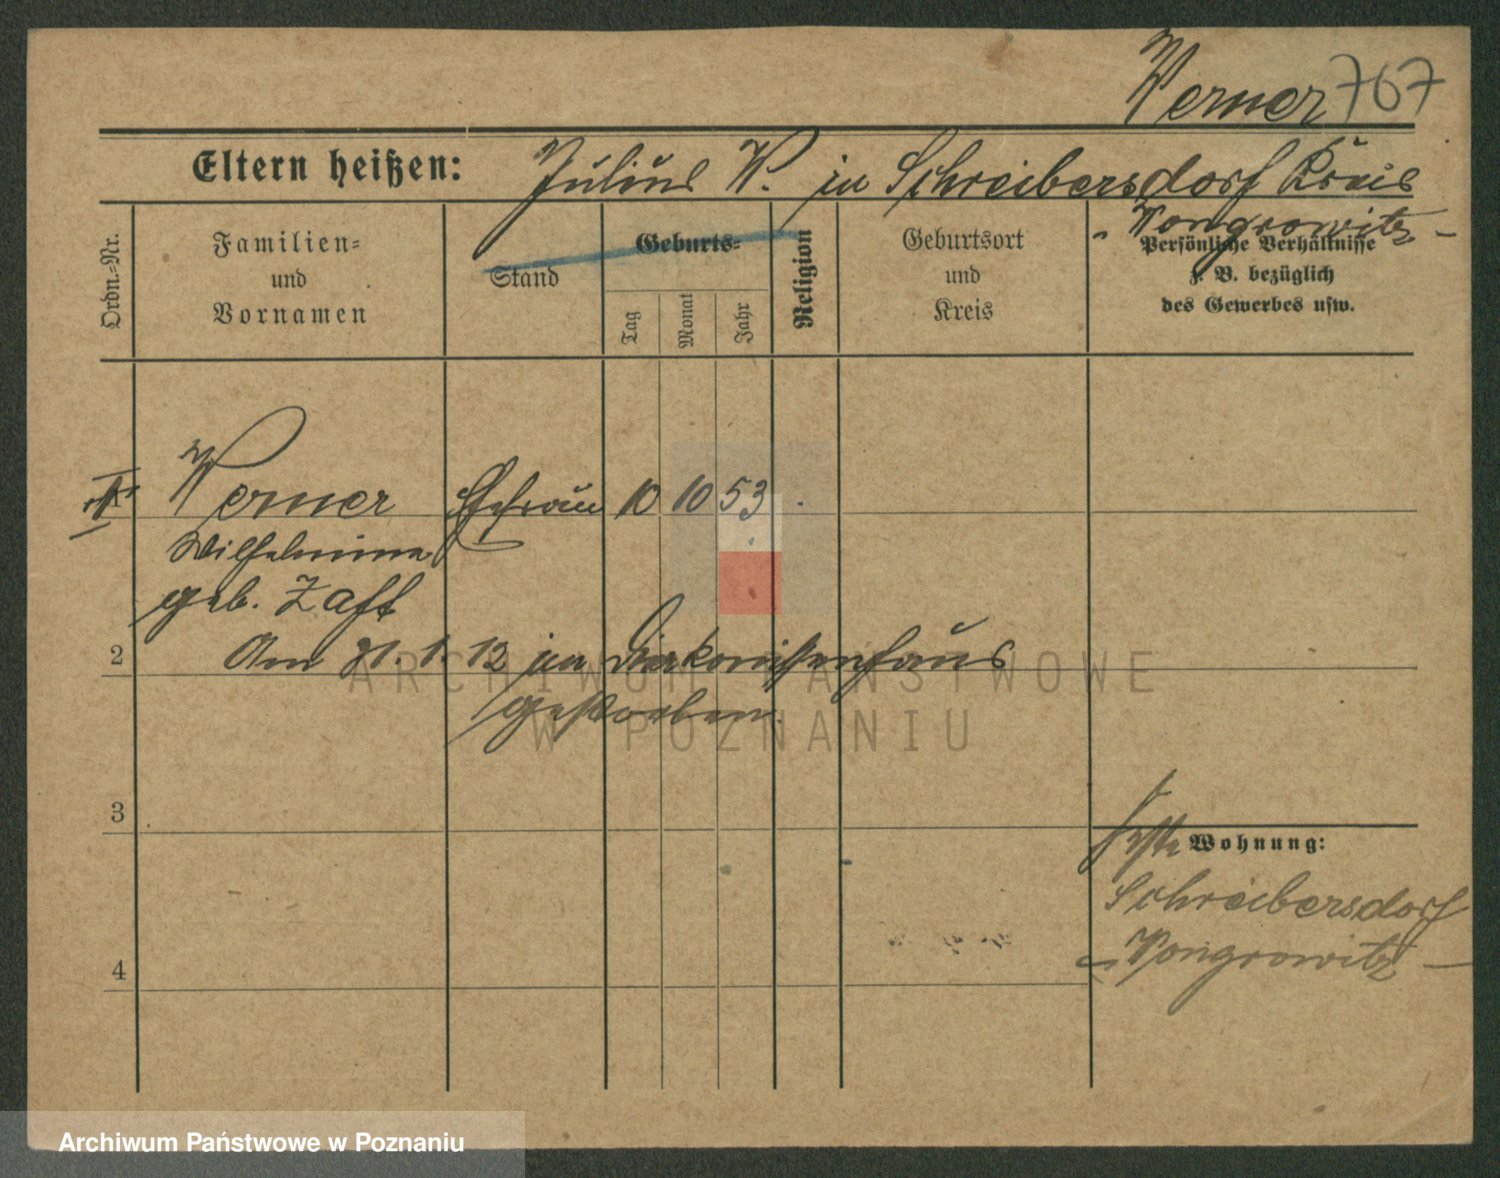 Werner 767
Eltern heißen: Julius W. in Schreibersdorf Kreis
Wongrowitz
Ordn.-Nr.
Familien-
und
Vornamen
Stand
Geburts-
Tag
Monat
Jahr
Religion
Geburtsort
und
Kreis
Persönliche Verhältnisse
z. B. bezüglich
des Gewerbes usw.
1 Werner Ehefrau 10 10 53
Wilhelmine
geb. Zaft
2 Am 21. 1. 12 im Diakonissenhaus
gestorben.
ARCHIWUM PAŃSTWOWE
W POZNANIU
3
Wohnung:
Schreibersdorf
4 Wongrowitz
Archiwum Państwowe w Poznaniu